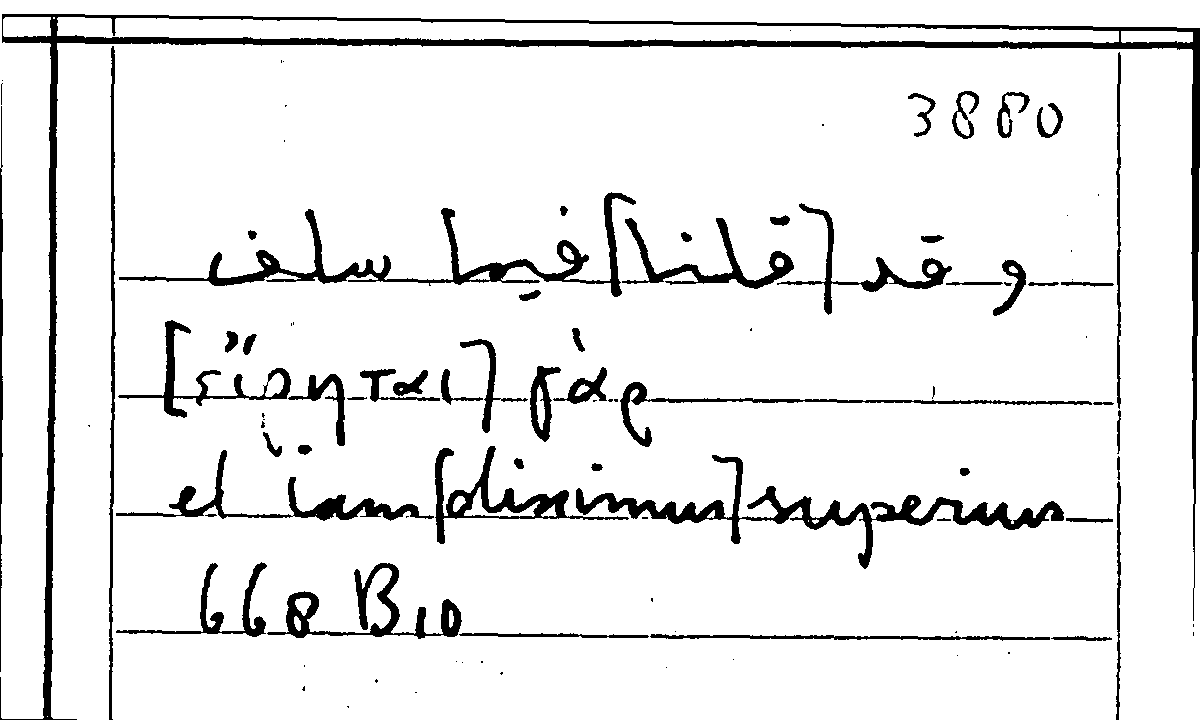 3880
وقد [قلنا] فيما سلف
[εἴρηται] γάρ
et iam [diximus] superius
668 B10